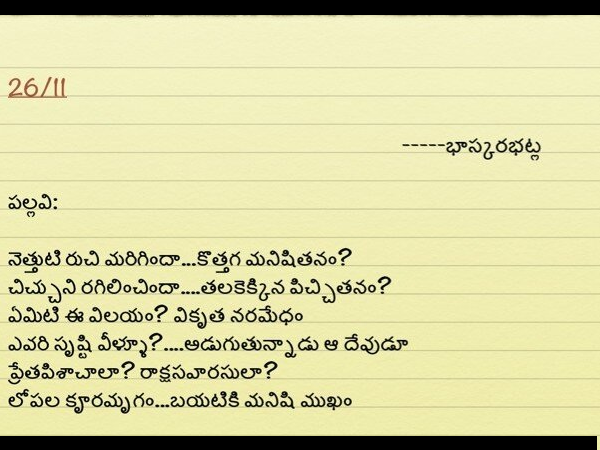 26/11
-----భాస్కరభట్ల
పల్లవి:
నెత్తుటి రుచి మరిగిందా...కొత్తగ మనిషితనం?
చిచ్చుని రగిలించిందా....తలకెక్కిన పిచ్చితనం?
ఏమిటి ఈ విలయం? వికృత నరమేధం
ఎవరి సృష్టి వీళ్ళూ?....అడుగుతున్నాడు ఆ దేవుడూ
ప్రేతపిశాచాలా? రాక్షసవారసులా?
లోపల కౄరమృగం...బయటికి మనిషి ముఖం